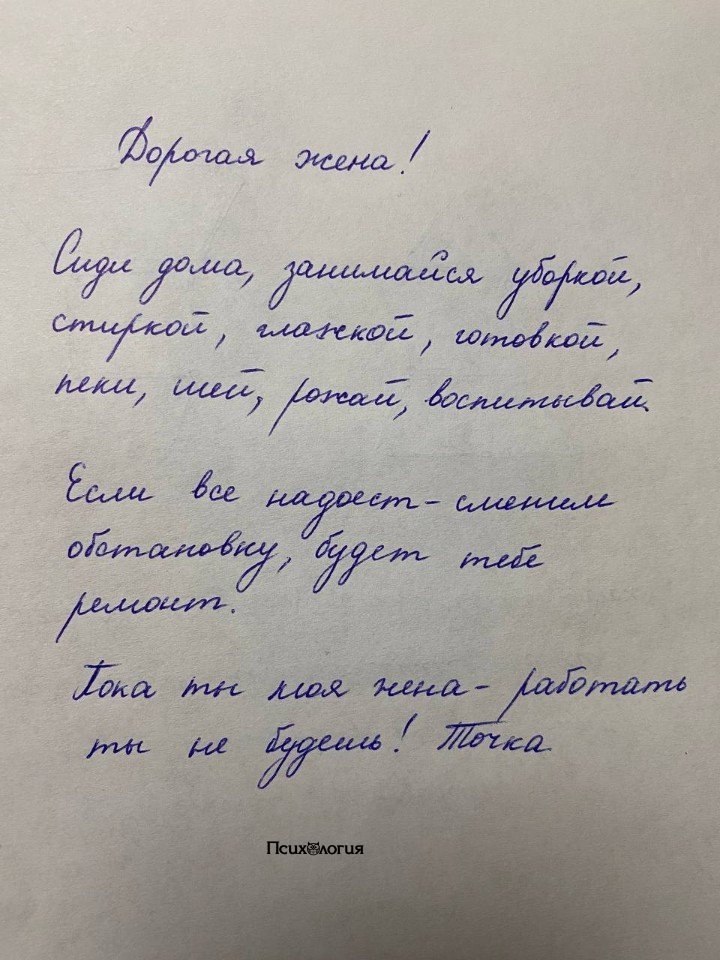 Дорогая жена!
Сиди дома, занимайся уборкой,
стиркой, глажкой, готовкой,
пеки, шей, рожай, воспитывай.
Если все надоест - сменим
обстановку, будет тебе
ремонт.
Пока ты моя жена - работать
ты не будешь! Точка
Психология